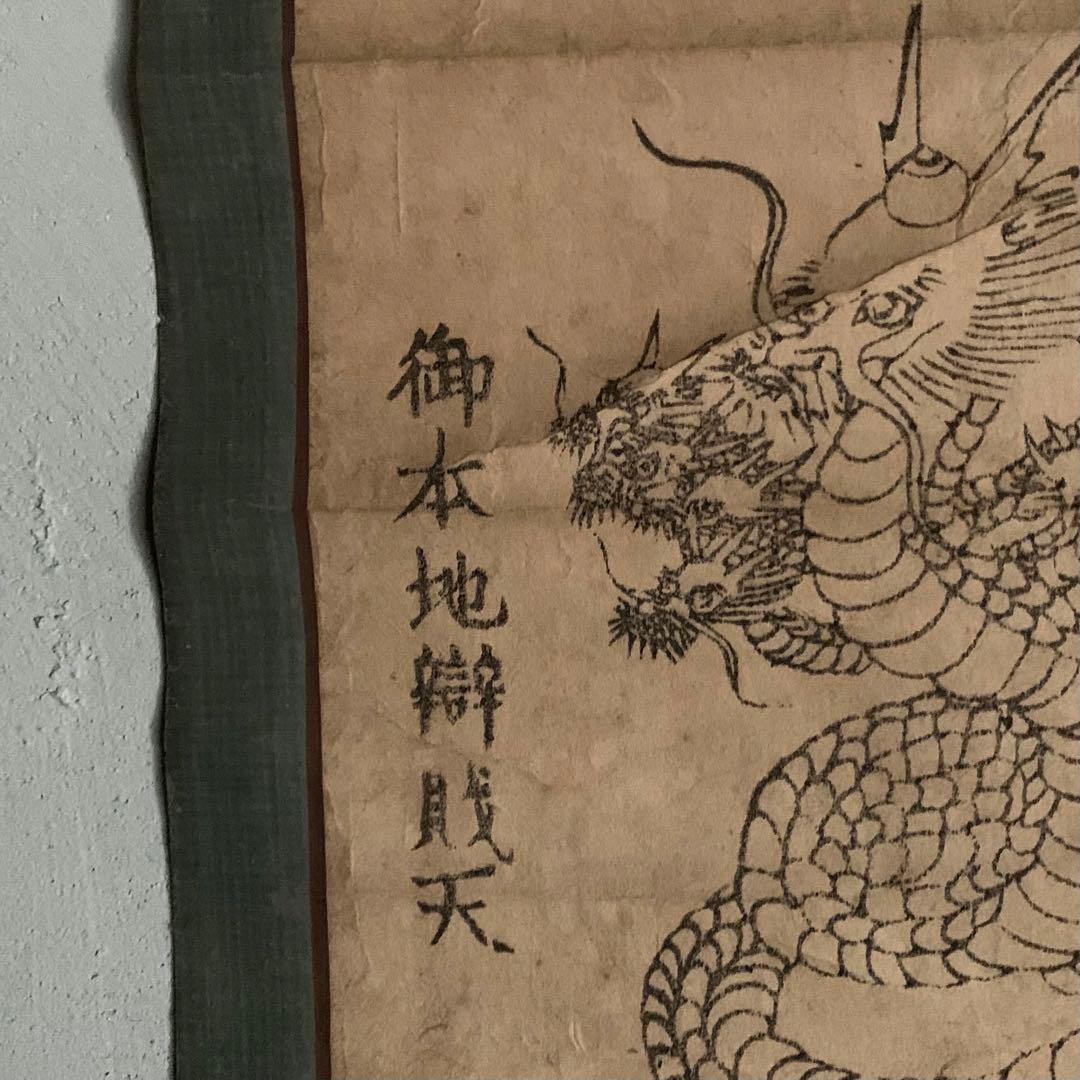 御本地辯戝天